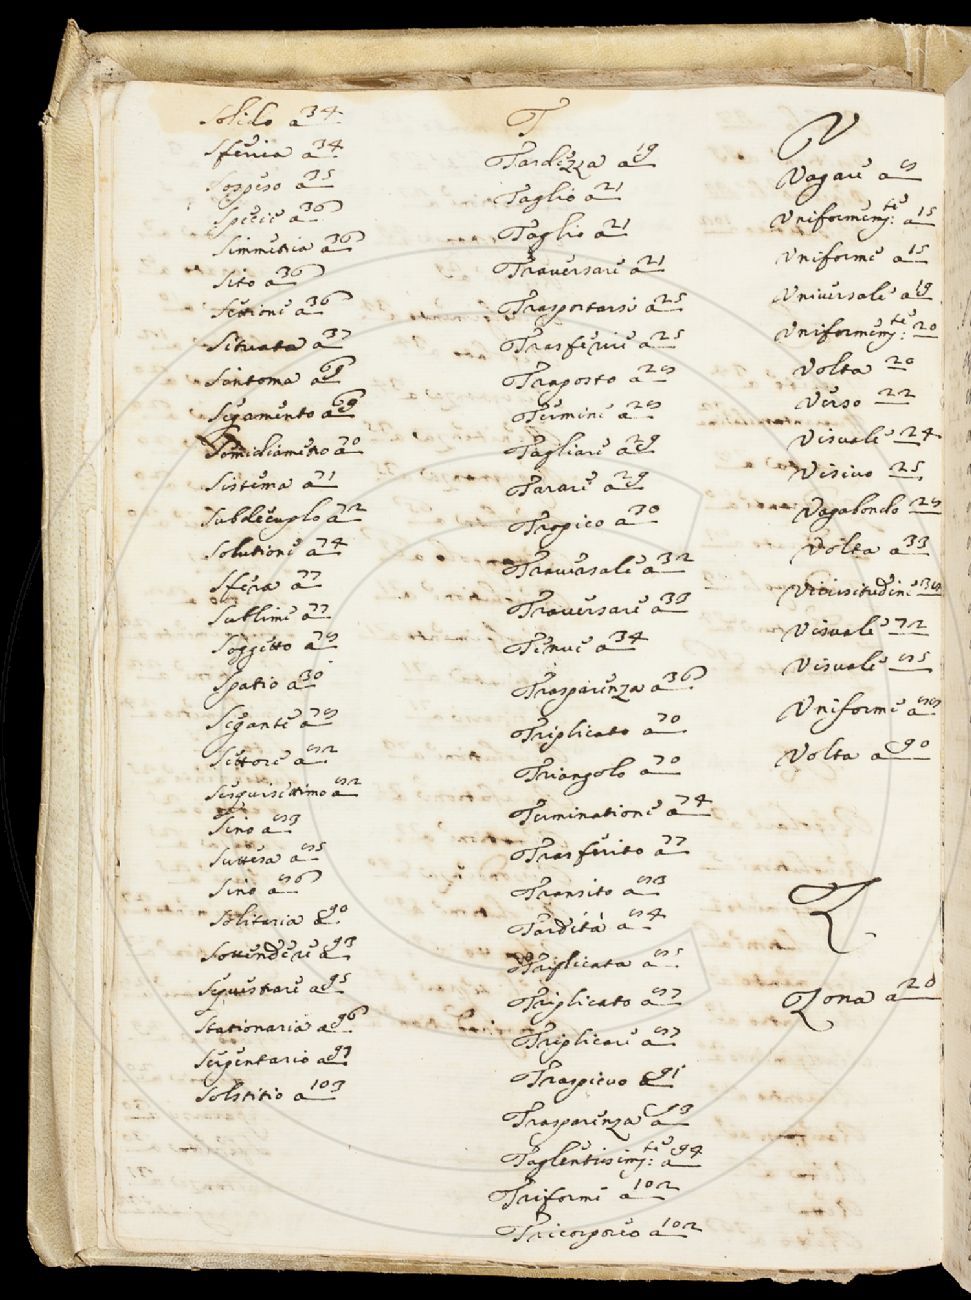 Solido a 34
Sferica a 34
Sospeso a 35
Specie a 36
Simmetria a 36
Sito a 36
Settione a 36
Situata a 37
Sintoma a 69
Segamento a 69
Semidiametro a 70
Sistema a 71
Subdecuplo a 72
Solutione a 74
Sfera a 77
Sublime a 77
Soggetto a 78
Spatio a 30
Segante a 78
Settore a 82
Sesquisettimo a 82
Sino a 83
Suttesa a 85
Sino a 86
Solitaria a 90
Sottendere a 93
Sequestrare a 95
Stationaria a 96
Serpentario a 97
Solstitio a 103
T
Tardezza a 19
Taglio a 21
Taglio a 21
Traversare a 21
Trasportarsi a 25
Trasferire a 25
Traposto a 28
Termine a 28
Tagliare a 29
Tarare a 29
Tropico a 70
Traversale a 32
Traversare a 33
Tenue a 34
Trasparenza a 36
Triplicato a 70
Triangolo a 70
Terminatione a 74
Trasferito 77
Transito a 83
Tardità a 84
Triplicata a 85
Triplicato a 87
Triplicare a 87
Traspicuo a 91
Trasparenza a
Taglentissimte: a 94
Triforme a 102
Tricorporeo a 102
V
Vagare a 8
Uniformemte: a 15
Uniforme a 15
Universale a 19
Uniformemte: 20
Volta 20
Verso 22
Visuale 24
Visivo 25
Vagabondo 28
Volta a 33
Vicissitudine 38
Visuale 72
Visuale 85
Uniforme a 88
Volta a 90
Z
Zona a 20